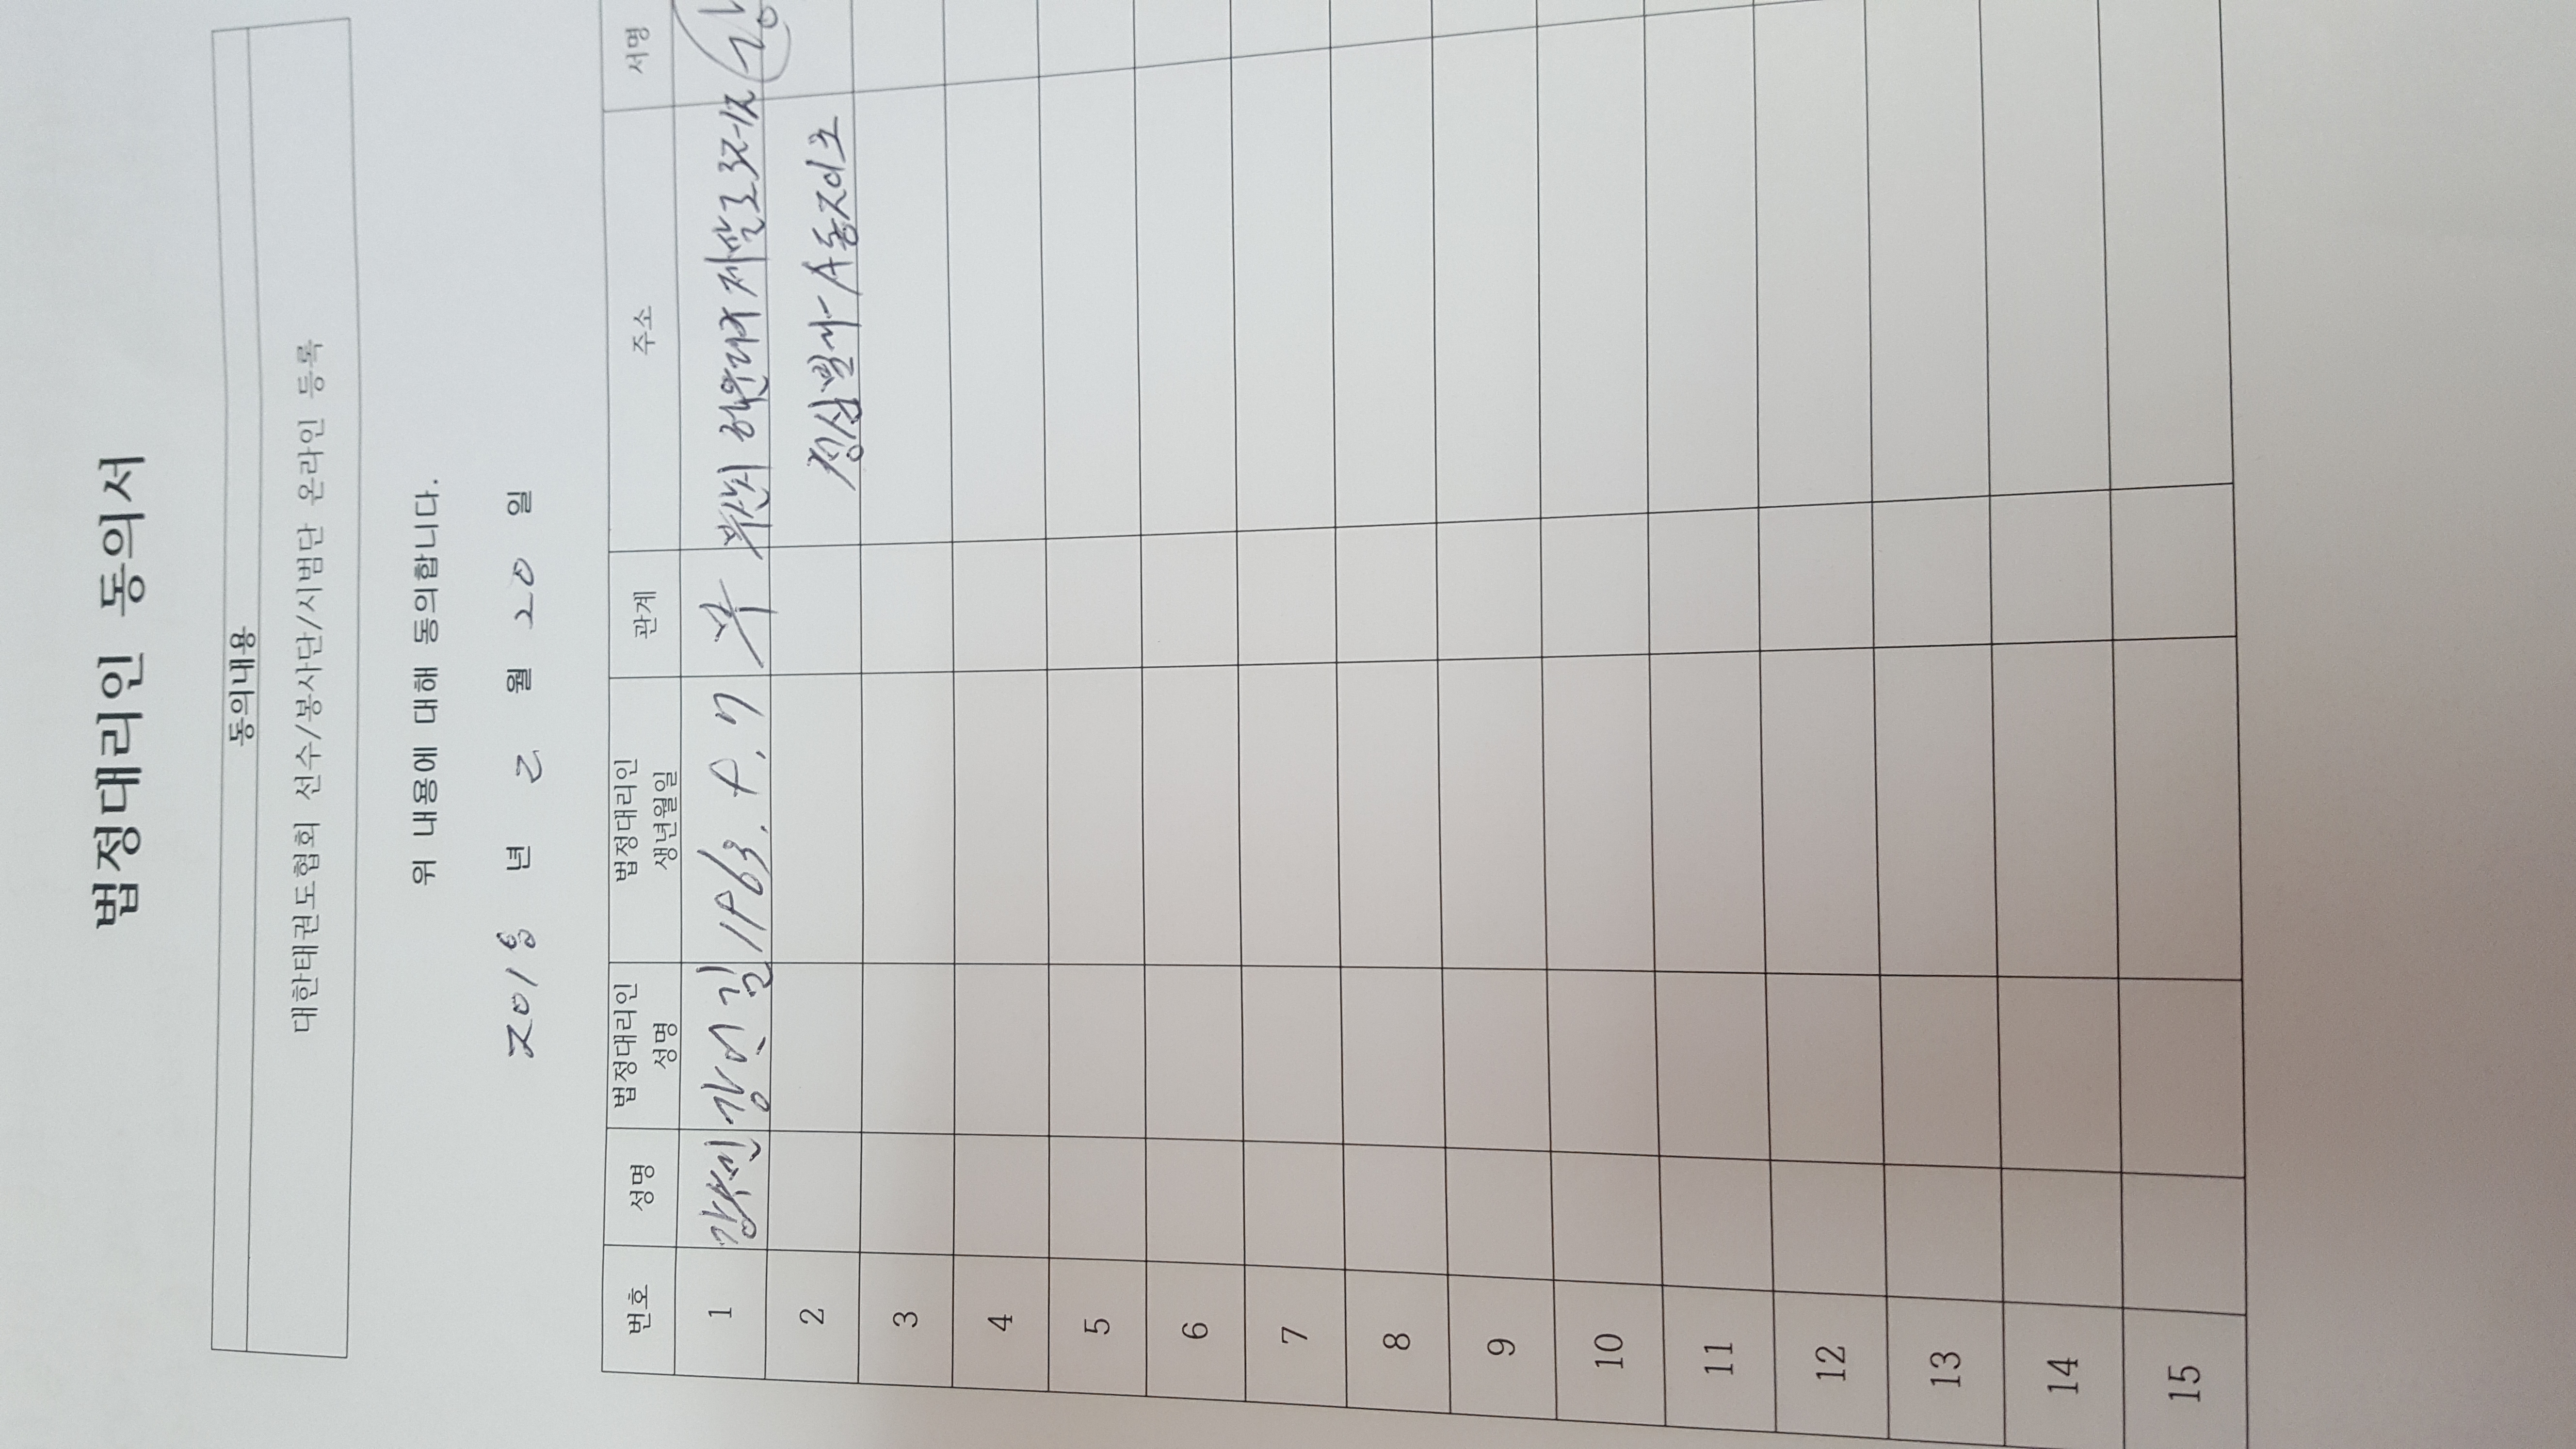 법정대리인 동의서
동의내용
대한태권도협회 선수/봉사단/시범단 온라인 등록
위 내용에 대해 동의합니다.
2018 년 2 월 20 일
번호 성명 법정대리인 성명 법정대리인 생년월일 관계 주소 서명
1 강수민 강인길 1963. 9. 7 부 부산시 해운대구 37-12
A동 201호
2
3
4
5
6
7
8
9
10
11
12
13
14
15